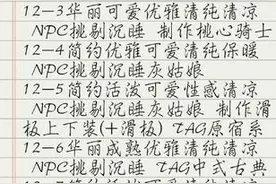 12-3华丽可爱优雅清纯清凉
NPC挑剔沉睡 制作桃心骑士
12-4简约优雅可爱清纯保暖
NPC挑剔沉睡灰姑娘
12-5简约活泼可爱性感清凉
NPC挑剔沉睡灰姑娘 制作滑
板上下装(+滑板) TAG原宿系
12-6华丽成熟优雅清纯清凉
NPC挑剔沉睡 TAG中式古典